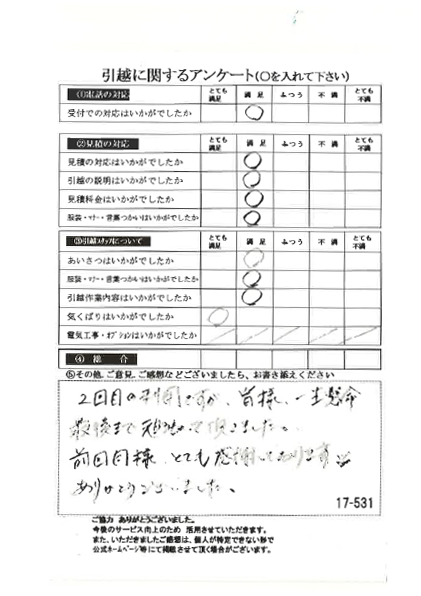 引越に関するアンケート(○を入れて下さい)
(1)お電話の対応 とても満足 満足 ふつう 不満 とても不満
受付での対応はいかがでしたか
(2)見積の対応 とても満足 満足 ふつう 不満 とても不満
見積の対応はいかがでしたか
引越の説明はいかがでしたか
見積料金はいかがでしたか
服装・マナー・言葉つかいはいかがでしたか
(3)引越スタッフについて とても満足 満足 ふつう 不満 とても不満
あいさつはいかがでしたか
服装・マナー・言葉つかいはいかがでしたか
引越作業内容はいかがでしたか
気くばりはいかがでしたか
電気工事・オプションはいかがでしたか
(4) 総 合
⑤その他、ご意見、ご感想などございましたら、お書き添えください
2回目の利用ですが、皆様、一生懸命
最後まで頑張って頂きました。
前回同様、とても感謝しております
ありがとうございました。
17-531
ご協力 ありがとうございました。
今後のサービス向上のため 活用させていただきます。
また、いただきましたご感想は、個人が特定できない形で
公式ホームページ等にて掲載させて頂く場合がございます。